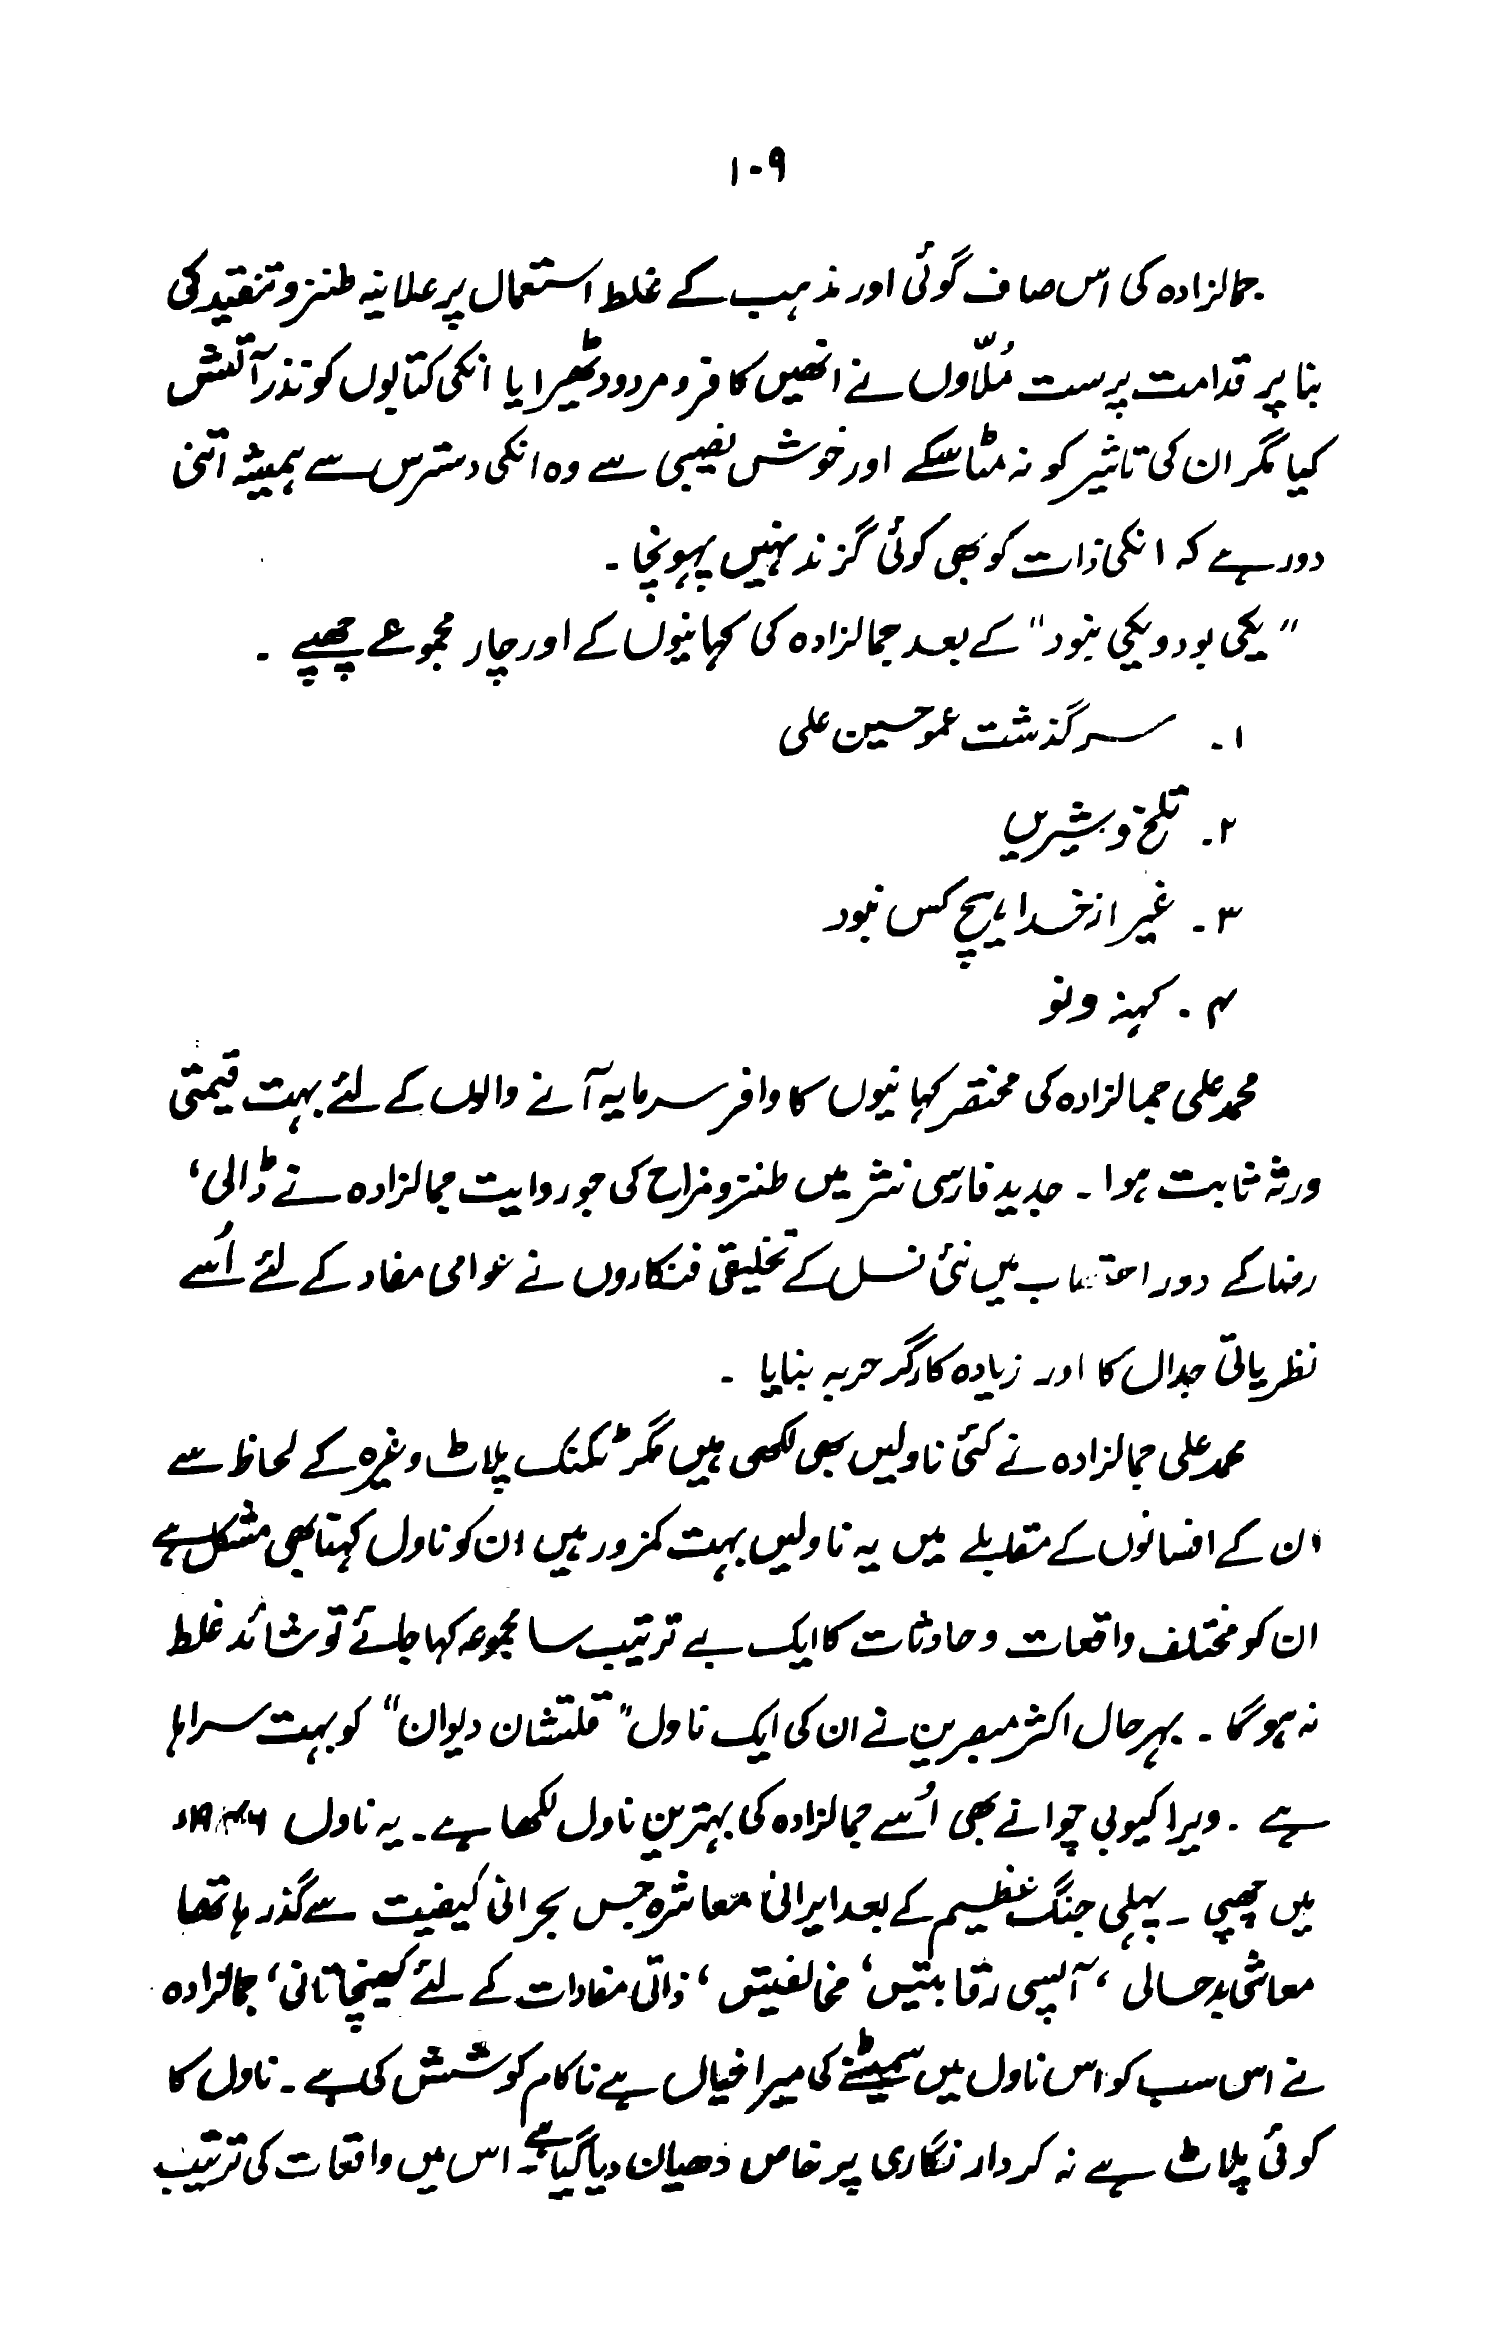 ۱۰۹
جمالزادہ کی اس صاف گوئی اور مذہب کے غلط استعمال پر علانیہ طنز و تنقید کی
بنا پر قدامت پرست مُلّاوں نے انھیں کافر و مردود ٹھیرایا انکی کتابوں کو نذر آتش
کیا مگر ان کی تاثیر کو نہ مٹا سکے اور خوش نصیبی سے وہ انکی دسترس سے ہمیشہ اتنی
دور رہے کہ انکی ذات کو بھی کوئی گزند نہیں پہونچا ۔
"یکی بود و یکی نبود" کے بعد جمالزادہ کی کہانیوں کے اور چار مجموعے چھپے ۔
۱۔ سرگذشت عمو حسین علی
۲۔ تلخ و شیریں
۳۔ غیر از خدا ہیچ کس نبود
۴۔ کہنہ و نو
محمد علی جمالزادہ کی مختصر کہانیوں کا وافر سرمایہ آنے والوں کے لئے بہت قیمتی
ورثہ ثابت ہوا ۔ جدید فارسی نثر میں طنز و مزاح کی جو روایت جمالزادہ نے ڈالی،
رضا کے دور احتساب میں نئی نسل کے تخلیقی فنکاروں نے عوامی مفاد کے لئے اُسے
نظریاتی جدال کا اور زیادہ کارگر حربہ بنایا ۔
محمد علی جمالزادہ نے کئی ناولیں بھی لکھی ہیں مگر ٹکنک پلاٹ وغیرہ کے لحاظ سے
ان کے افسانوں کے مقابلے میں یہ ناولیں بہت کمزور ہیں ان کو ناول کہنا بھی مشکل ہے
ان کو مختلف واقعات و حادثات کا ایک بے ترتیب سا مجموعہ کہا جائے تو شائد غلط
نہ ہوگا ۔ بہر حال اکثر مبصرین نے ان کی ایک ناول "قلتشان دیوان" کو بہت سراہا
ہے ۔ ویرا کیوبی چوا نے بھی اُسے جمالزادہ کی بہترین ناول لکھا ہے ۔ یہ ناول ۱۹۴۶ء
میں چھپی ۔ پہلی جنگ عظیم کے بعد ایرانی معاشرہ جس بحرانی کیفیت سے گذر رہا تھا
معاشی بدحالی، آپسی رقابتیں، مخالفیتں، ذاتی مفادات کے لئے کھینچا تانی، جمالزادہ
نے اس سب کو اس ناول میں سمیٹنے کی میرا خیال ہے ناکام کوشش کی ہے ۔ ناول کا
کوئی پلاٹ ہے نہ کردار نگاری پر خاص دھیان دیا گیا ہے ۔ اس میں واقعات کی ترتیب